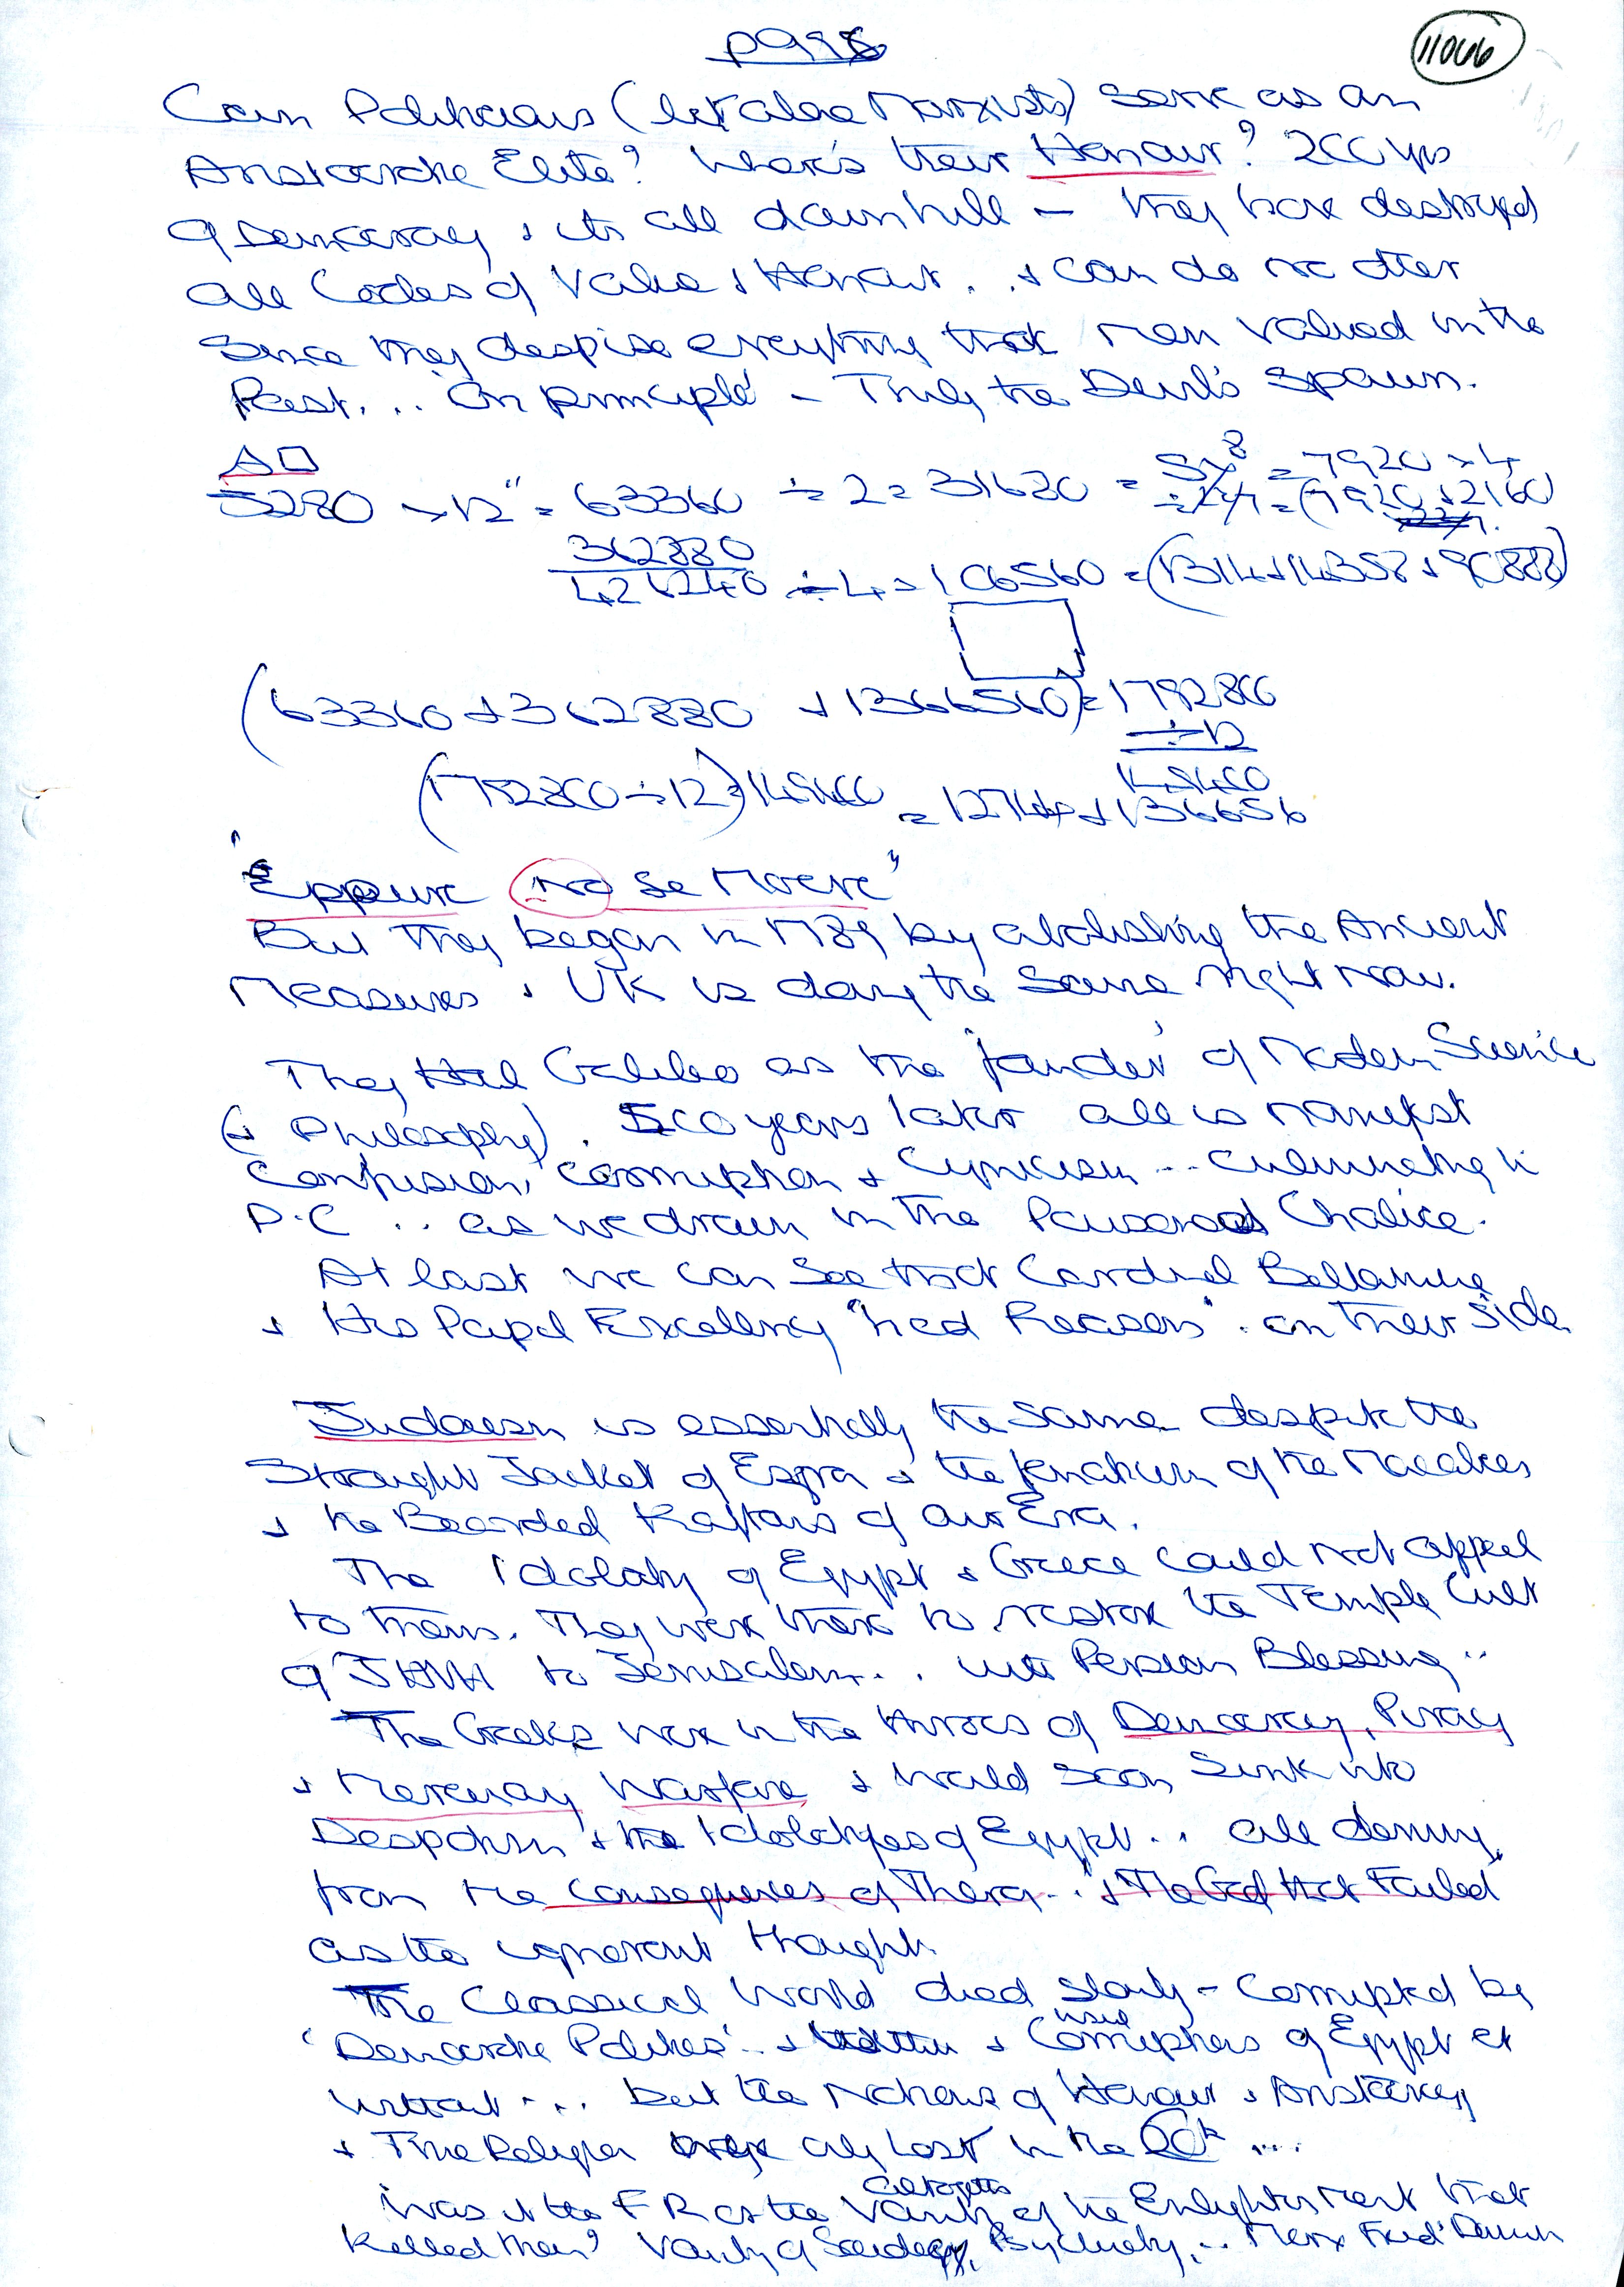 p998
11046
Can Politicians (let alone Marxists) serve as an
Aristocratic Elite? Where's their Honour? 200 yrs
of Democracy & its all downhill – they have destroyed
all Codes of Value & Honour .. & can do no other
Since they despise everything that men valued in the
Past... 'On principle' – Truly the Devil's Spawn.
△□
5280 × 12" = 63360 ÷ 2 = 31680 = = 7920 × 4
= (7920 + 2160
362880
426240 ÷ 4 = 106560 = (1314 + 14358 + 90888)
(63360 + 362880 + 1366560) = 1792800
÷ 12
149400
(1792800 ÷ 12) = 149400 = 12744 + 136656
"Eppure no se Movere"
But they began in 1789 by abolishing the Ancient
Measures & UK is doing the same right now.
They Hail Galileo as the 'founder' of Modern Science
(& Philosophy). 500 years later all is manifest
Confusion, Corruption & Cynicism ... culminating in
P.C .. as we drown in the Poisoned Chalice.
At last we can see that Cardinal Bellarmine
& His Papal Excellency "had Reasons" on their side.
Judaism is essentially the same despite the
Straight Jacket of Ezra & the fanaticism of the Macabees
& the Bearded Kaftans of our Era.
The Idolatry of Egypt & Greece could not appeal
to them. They were there to restore the Temple Cult
of JHVH to Jerusalem... with Persian Blessing ..
The Greeks were in the throes of Democracy, Piracy
& Mercenary Warfare & would soon sink into
Despotism & the Idolatryes of Egypt ... all deriving
from the consequences of Thera .. & "The God that Failed"
as the ignorant thought.
The Classical World died slowly – corrupted by
'Democratic Politics' .. & & usual Corruptions of Egypt et
... but the Notions of Honour & Aristocracy
& True Religion only Lost in the 20th ....
Was it the F R or the Vanity of the Enlightenment that
killed them? Vanity of Sociology, Psychiatry, .. Marx Freud Darwin